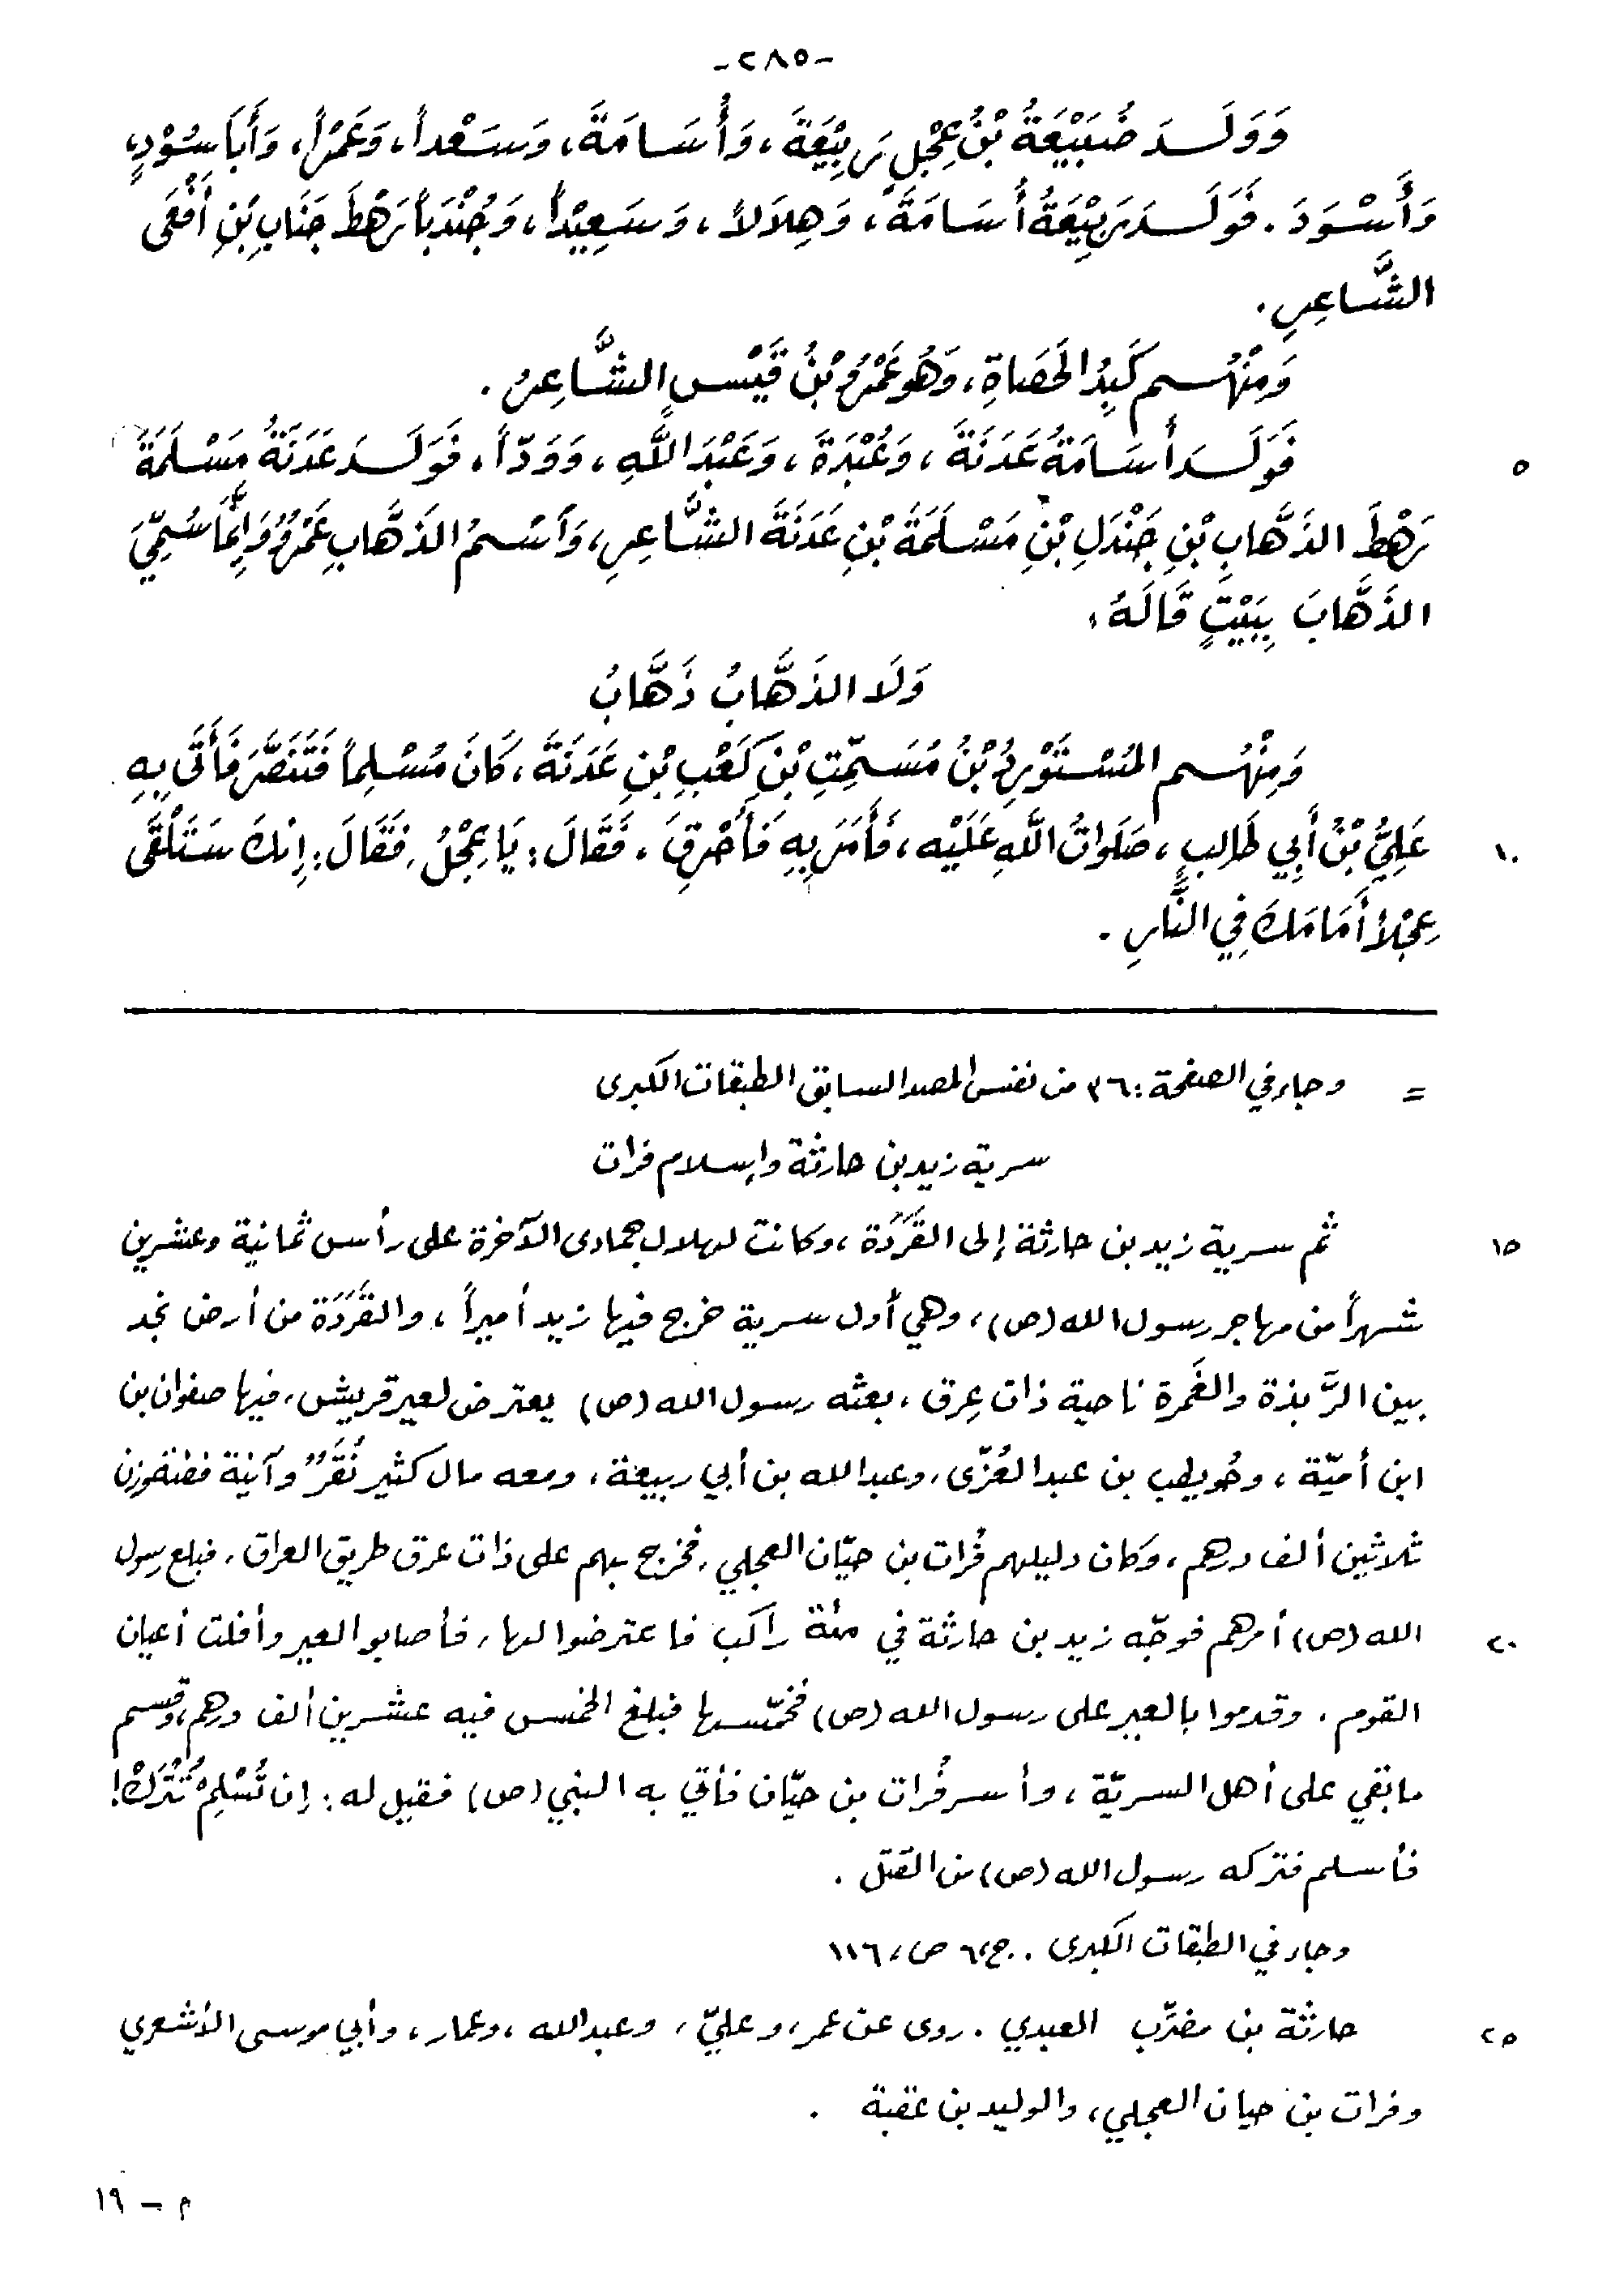 -٢٨٥-
وَوَلَدَ ضُبَيْعَةُ بْنُ عِجْلٍ رَبِيْعَةَ، وَأُسَامَةَ، وَسَعْداً، وَعَمْراً، وَأَبَا سُوْدٍ،
وَأَسْوَدَ. فَوَلَدَ رَبِيْعَةُ أُسَامَةَ، وَهِلَالاً، وَسَعِيْداً، وَجُنْدَباً رَهْطَ جَنَابِ بْنِ أَفْعَى
الشَّاعِرِ.
وَمِنْهُم كَبِدُ الحَصَاةِ، وَهُوَ عَمْرُو بْنُ قَيْسٍ الشَّاعِرُ.
فَوَلَدَ أُسَامَةُ عَدَنَةَ، وَعُبْدَةَ، وَعَبْدَ اللَّهِ، وَوَدّاً، فَوَلَدَ عَدَنَةُ مَسْلَمَةَ ٥
رَهْطَ الذَّهَّابِ بْنِ جَنْدَلِ بْنِ مَسْلَمَةَ بْنِ عَدَنَةَ الشَّاعِرِ، وَٱسْمُ الذَّهَّابِ عَمْرٌو وَإِنَّمَا سُمِّيَ
الذَّهَّابَ بِبَيْتٍ قَالَهُ:
وَلَا الذَّهَّابُ ذَهَّابُ
وَمِنْهُم المُسْتَوْرِدُ بْنُ مُسَمِّتِ بْنِ كَعْبِ بْنِ عَدَنَةَ، كَانَ مُسْلِماً فَتَنَصَّرَ فَأَتَى بِهِ
عَلِيُّ بْنُ أَبِي طَالِبٍ، صَلَوَاتُ اللَّهِ عَلَيْه، فَأَمَرَ بِهِ فَأُحْرِقَ، فَقَالَ: يَا عِجْلُ، فَقَالَ: إِنَكَ سَتَلْقَى ١٠
عِجْلاً أَمَامَكَ فِي النَّارِ.
= وجاء في الصفحة: ٣٦ من نفس المصدر السابق الطبقات الكبرى
سرية زيد بن حارثة وإسلام فرات
ثم سرية زيد بن حارثة إلى القَرَدَة، وكانت لهلال جمادى الآخرة على رأس ثمانية وعشرين ١٥
شهراً من مهاجر رسول الله (ص)، وهي أول سرية خرج فيها زيد أميراً، والقَرَدَة من أرض نجد
بين الرَّبذة والغَمرة ناحية ذات عِرق، بعثه رسول الله (ص) يعترض لعير قريش، فيها صفوان بن
ابن أميّة، وحُويطب بن عبد العُزّى، وعبد الله بن أبي ربيعة، ومعه مال كثير نُقَرٌ وآنية فضة وزن
ثلاثين ألف درهم، وكان دليلهم فُرات بن حيّان العجلي، فخرج بهم على ذات عرق طريق العراق، فبلغ رسول
الله (ص) أمرهم فوجّه زيد بن حارثة في مئة راكب فاعترضوا لها، فأصابوا العير وأفلت أعيان ٢٠
القوم، وقدموا بالعير على رسول الله (ص) فخمّسها فبلغ الخمس فيه عشرين ألف درهم، وقسم
ما بقي على أهل السريّة، وأسر فُرات بن حيّان فأتي به النبي (ص) فقيل له: إن تُسْلِمْ تُتْرَكْ!
فأسلم فتركه رسول الله (ص) من القتل.
وجاء في الطبقات الكبرى .. ج، ٦ ص، ١١٦
حارثة بن مضرّب العبدي. روى عن عمر، وعليّ، وعبدالله، وعمار، وأبي موسى الأشعري ٢٥
وفرات بن حيان العجلي، والوليد بن عقبة .
م - ١٩